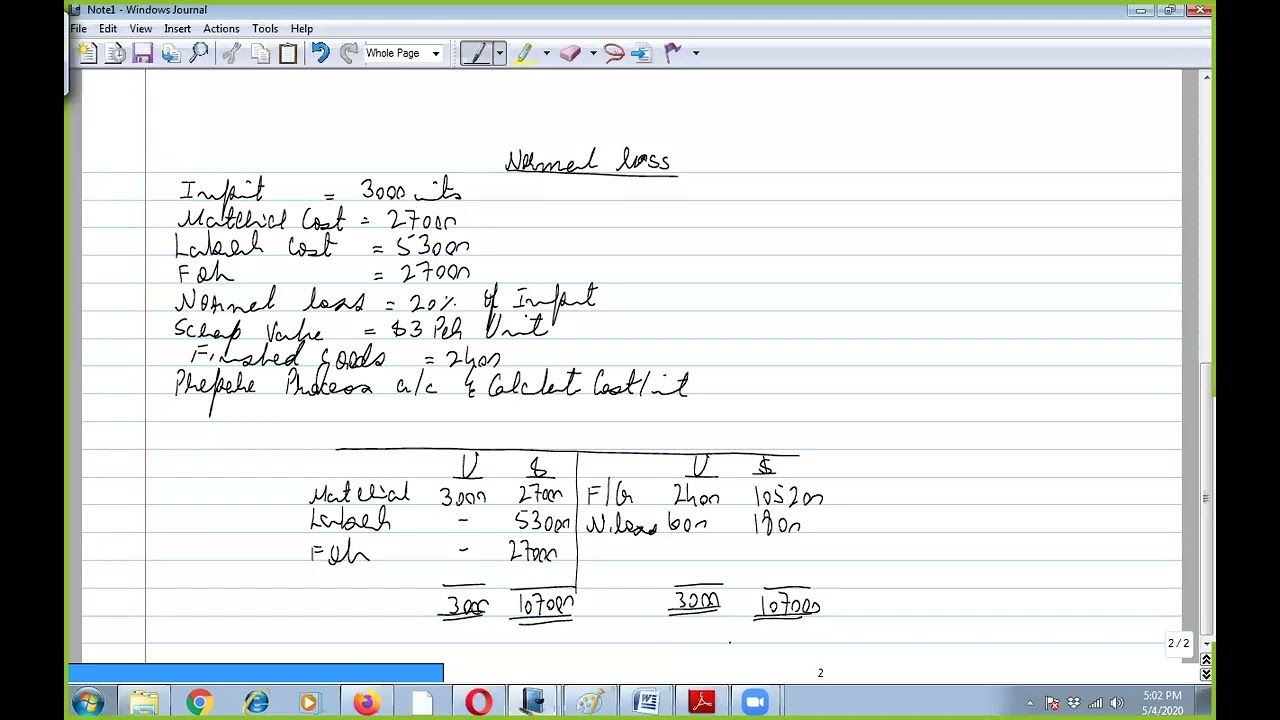 Note1 - Windows Journal
File Edit View Insert Actions Tools Help
Whole Page
Normal loss
Input = 3000 units
Material Cost = 27000
Labour Cost = 53000
Foh = 27000
Normal loss = 20% of Input
Scrap Value = $3 Per Unit
Finished goods = 2400
Prepare Process a/c & Calculate Cost/unit
U $ U $
Material 3000 27000 F/G 2400 105200
Labour - 53000 N. loss 600 1800
Foh - 27000
3000 107000 3000 107000
2 / 2
2
5:02 PM
5/4/2020